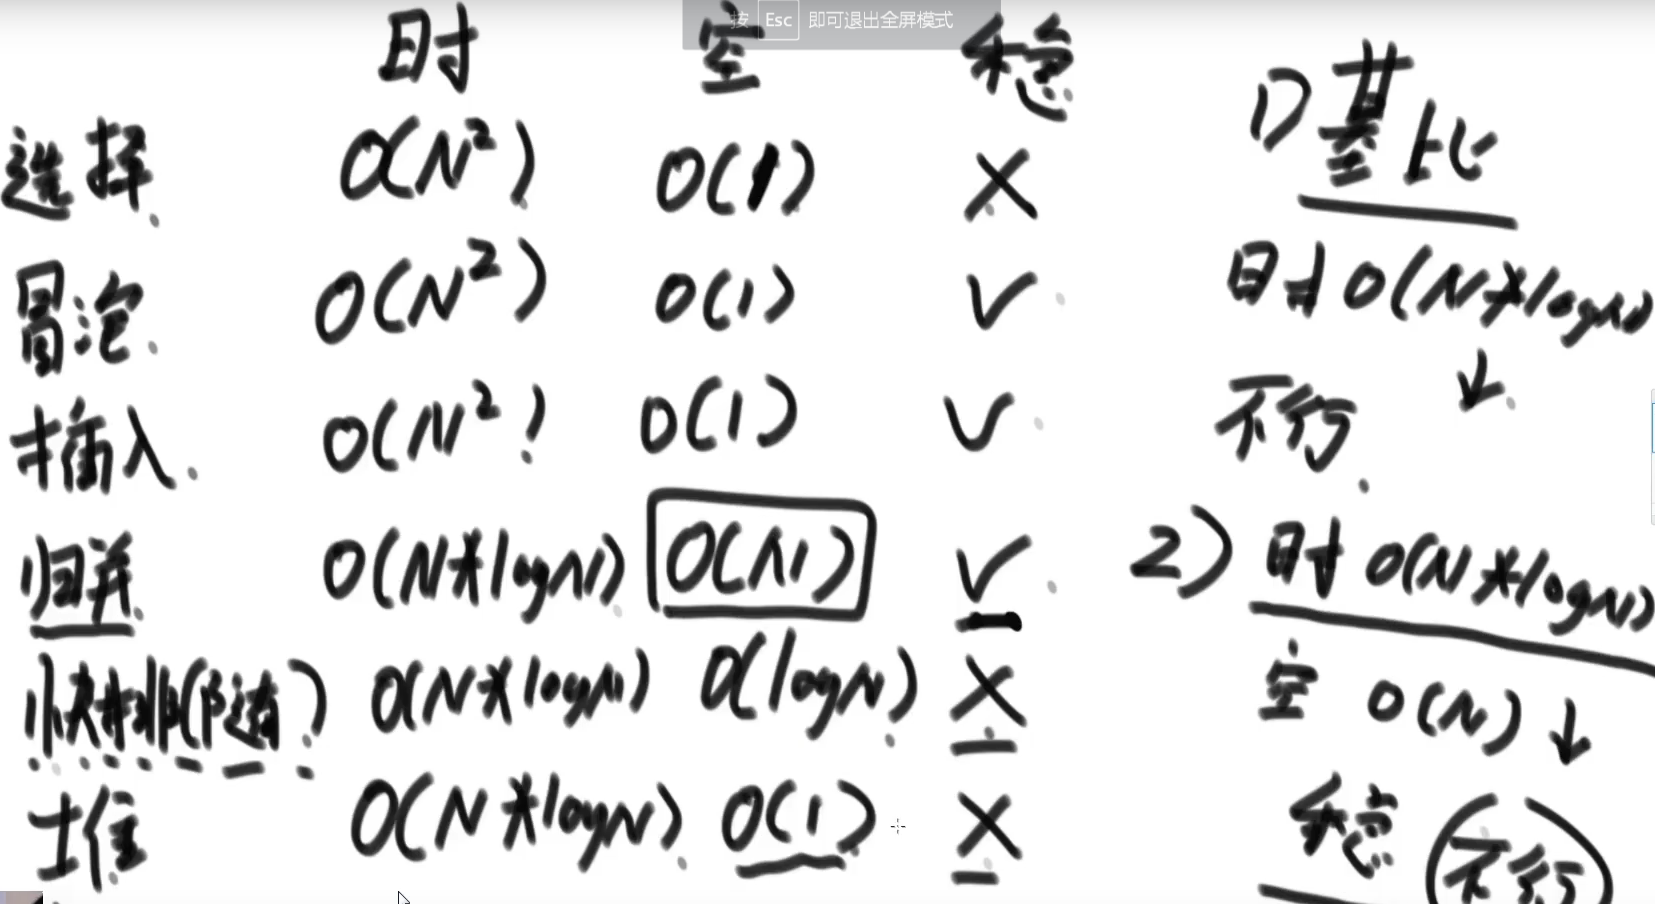 按 Esc 即可退出全屏模式
时 空 稳
选择 O(N²) O(1) X
冒泡 O(N²) O(1) √
插入 O(N²) O(1) √
归并 O(N*logN) O(N) √
快排(随) O(N*logN) O(logN) X
堆 O(N*logN) O(1) X
1) 基比
时 O(N*logN) ↓
不行
2) 时 O(N*logN)
空 O(N) ↓
稳 不行